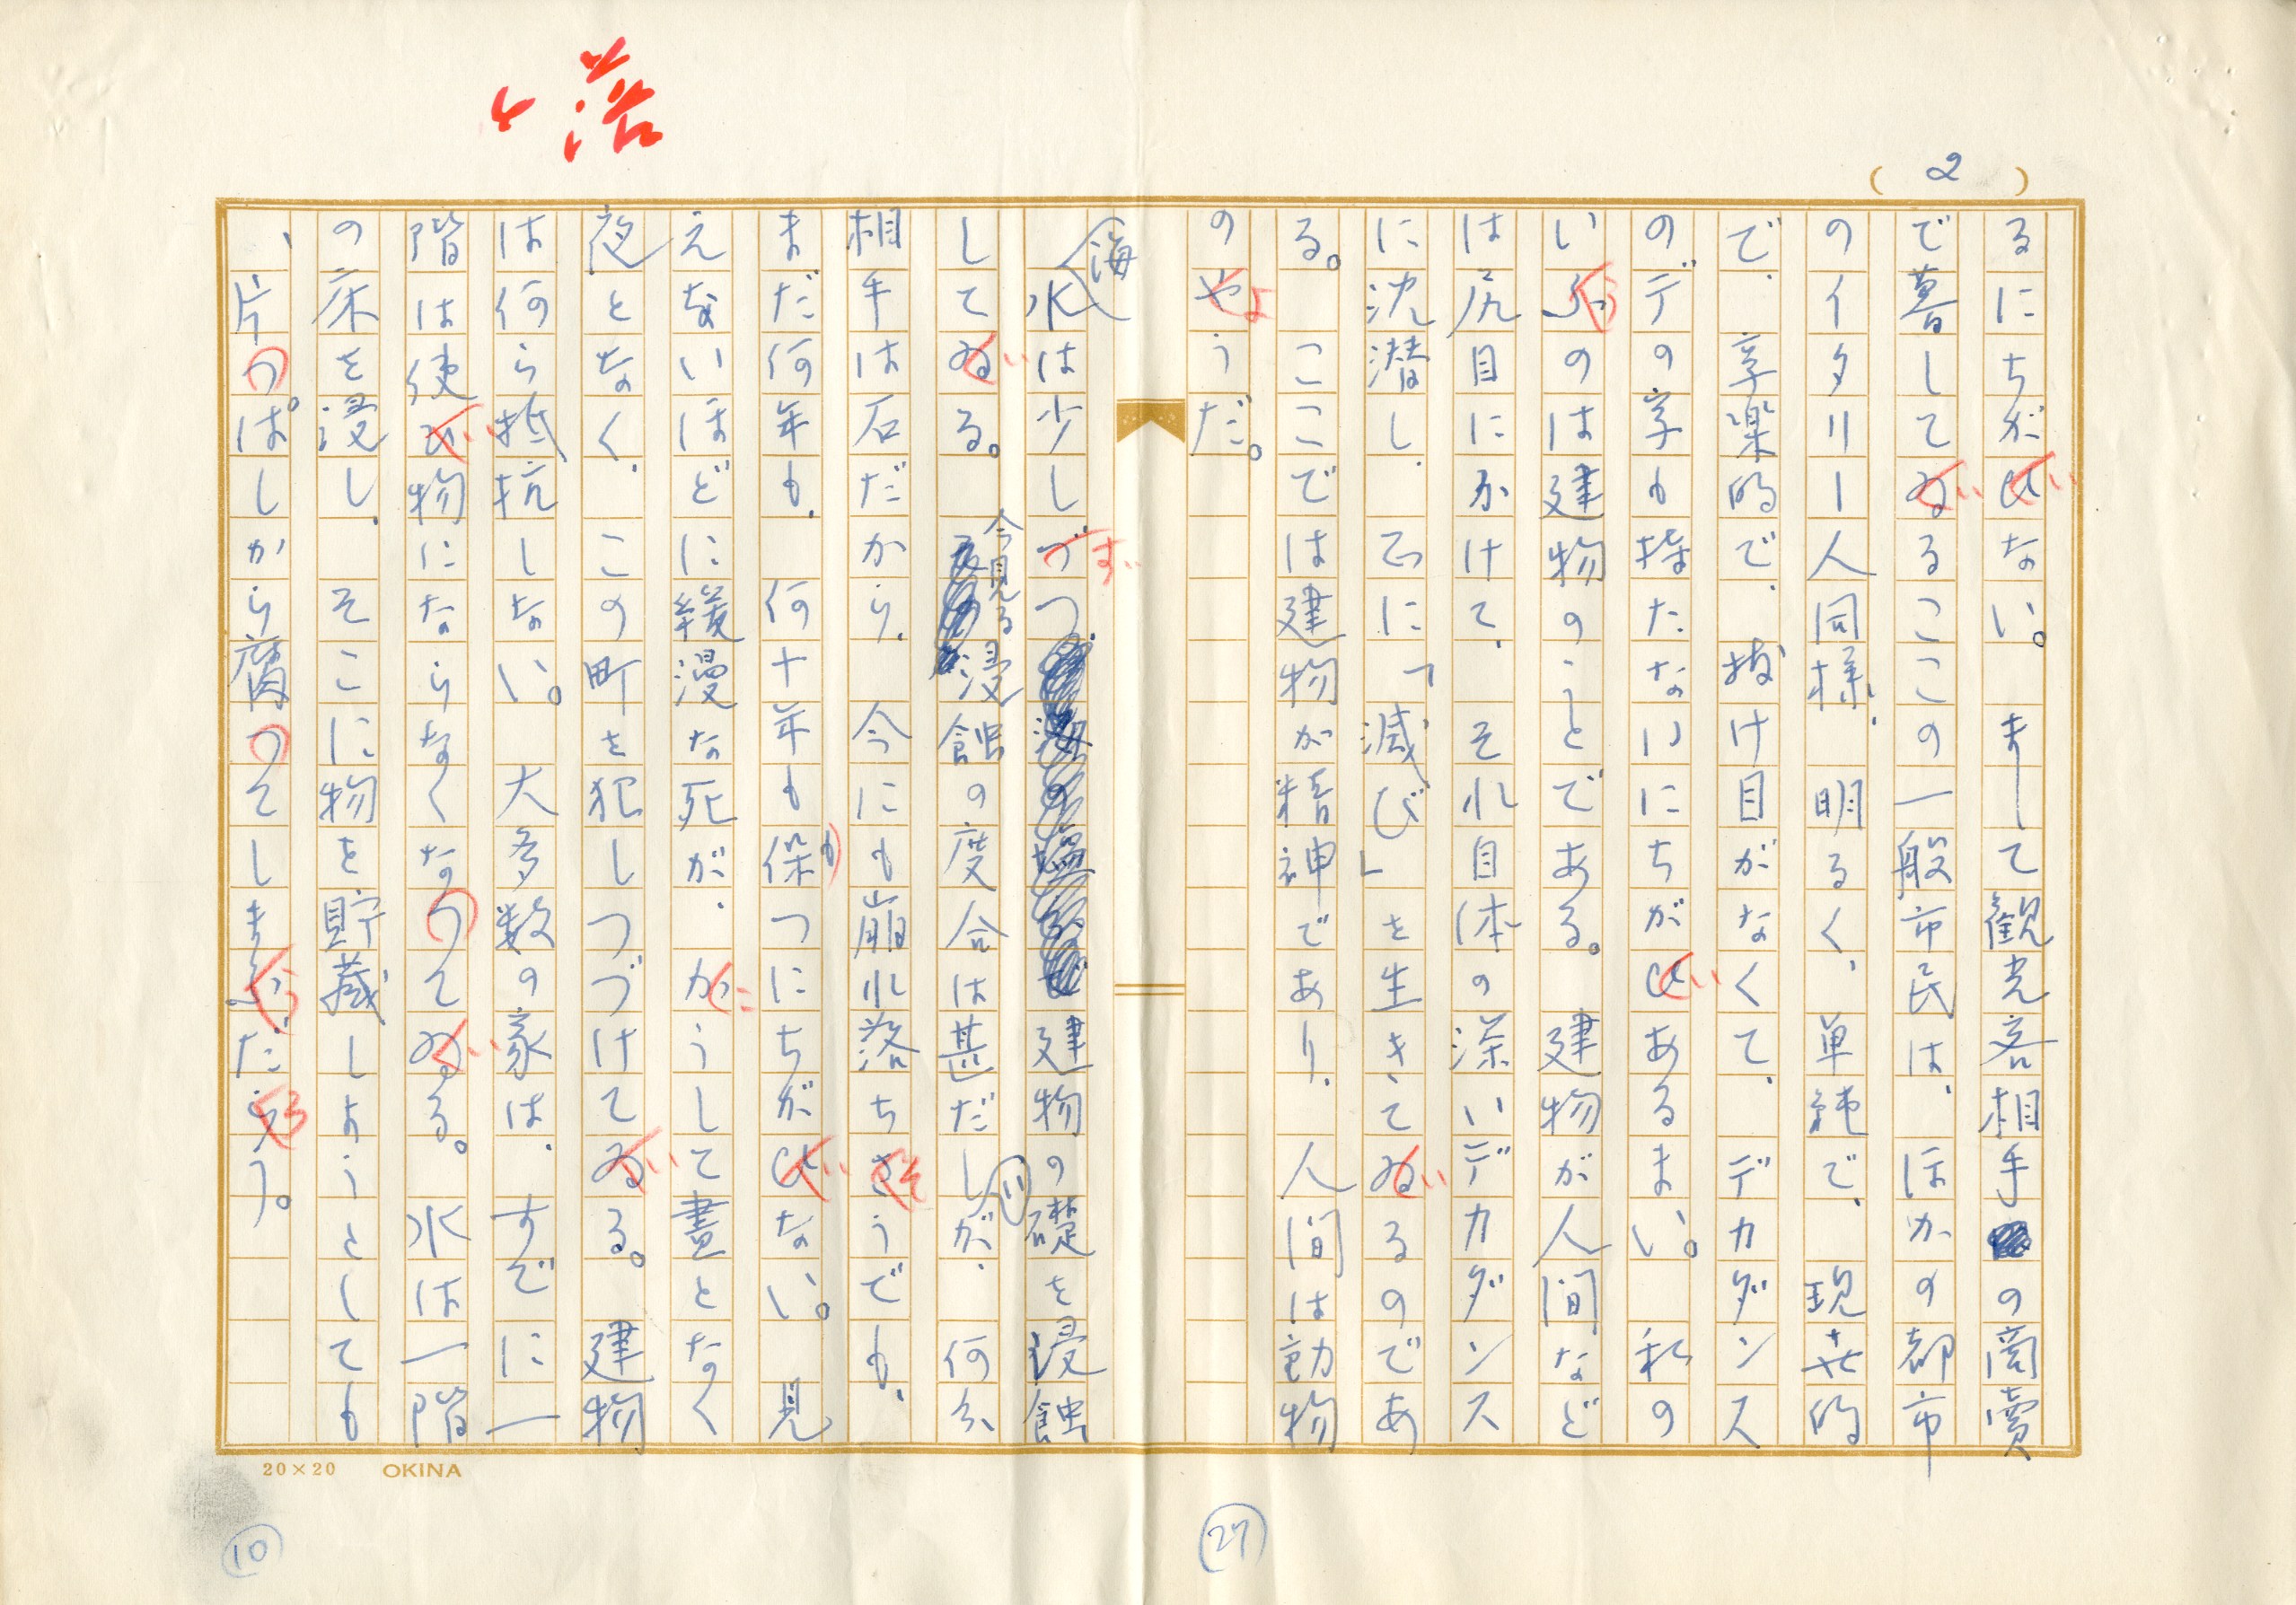 落
( 2 )
るにちがひない。まして観光客相手の商賣
で暮してゐるここの一般市民は、ほかの都市
のイタリー人同様、明るく、単純で、現世的
で、享楽的で、抜け目がなくて、デカダンス
のデの字も持たないにちがひあるまい。私の
いふのは建物のことである。建物が人間など
は尻目にかけて、それ自体の深いデカダンス
に沈潜し、正に「滅び」を生きてゐるのであ
る。ここでは建物が精神であり、人間は動物
のやうだ。
海水は少しづつ、建物の礎を浸蝕
してゐる。今見る浸蝕の度合は甚だしいが、何分
相手は石だから、今にも崩れ落ちさうでも、
まだ何年も、何十年も保つにちがひない。見
えないほどに緩漫な死が、かうして晝となく
夜となく、この町を犯しつづけてゐる。建物
は何ら抵抗しない。大多数の家は、すでに一
階は使ひ物にならなくなつてゐる。水は一階
の床を浸し、そこに物を貯蔵しようとしても
、片つぱしから腐つてしまふだらう。
20×20 OKINA
27
10